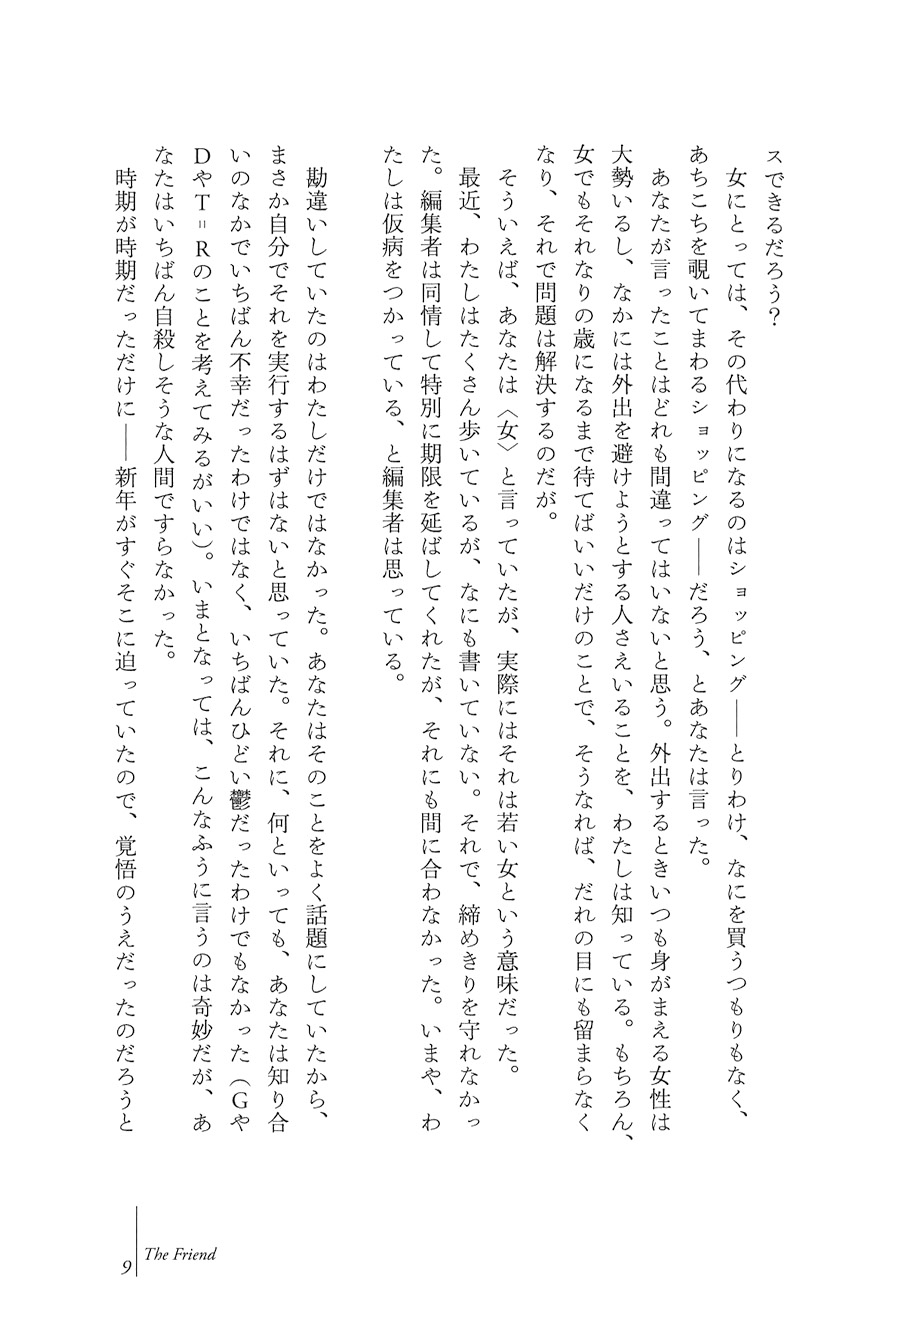 スできるだろう？
　女にとっては、その代わりになるのはショッピング――とりわけ、なにを買うつもりもなく、
あちこちを覗いてまわるショッピング――だろう、とあなたは言った。
　あなたが言ったことはどれも間違ってはいないと思う。外出するときいつも身がまえる女性は
大勢いるし、なかには外出を避けようとする人さえいることを、わたしは知っている。もちろん、
女でもそれなりの歳になるまで待てばいいだけのことで、そうなれば、だれの目にも留まらなく
なり、それで問題は解決するのだが。
　そういえば、あなたは〈女〉と言っていたが、実際にはそれは若い女という意味だった。
　最近、わたしはたくさん歩いているが、なにも書いていない。それで、締めきりを守れなかっ
た。編集者は同情して特別に期限を延ばしてくれたが、それにも間に合わなかった。いまや、わ
たしは仮病をつかっている、と編集者は思っている。
　勘違いしていたのはわたしだけではなかった。あなたはそのことをよく話題にしていたから、
まさか自分でそれを実行するはずはないと思っていた。それに、何といっても、あなたは知り合
いのなかでいちばん不幸だったわけではなく、いちばんひどい鬱だったわけでもなかった（Gや
DやT＝Rのことを考えてみるがいい）。いまとなっては、こんなふうに言うのは奇妙だが、あ
なたはいちばん自殺しそうな人間ですらなかった。
　時期が時期だっただけに――新年がすぐそこに迫っていたので、覚悟のうえだったのだろうと
The Friend
9